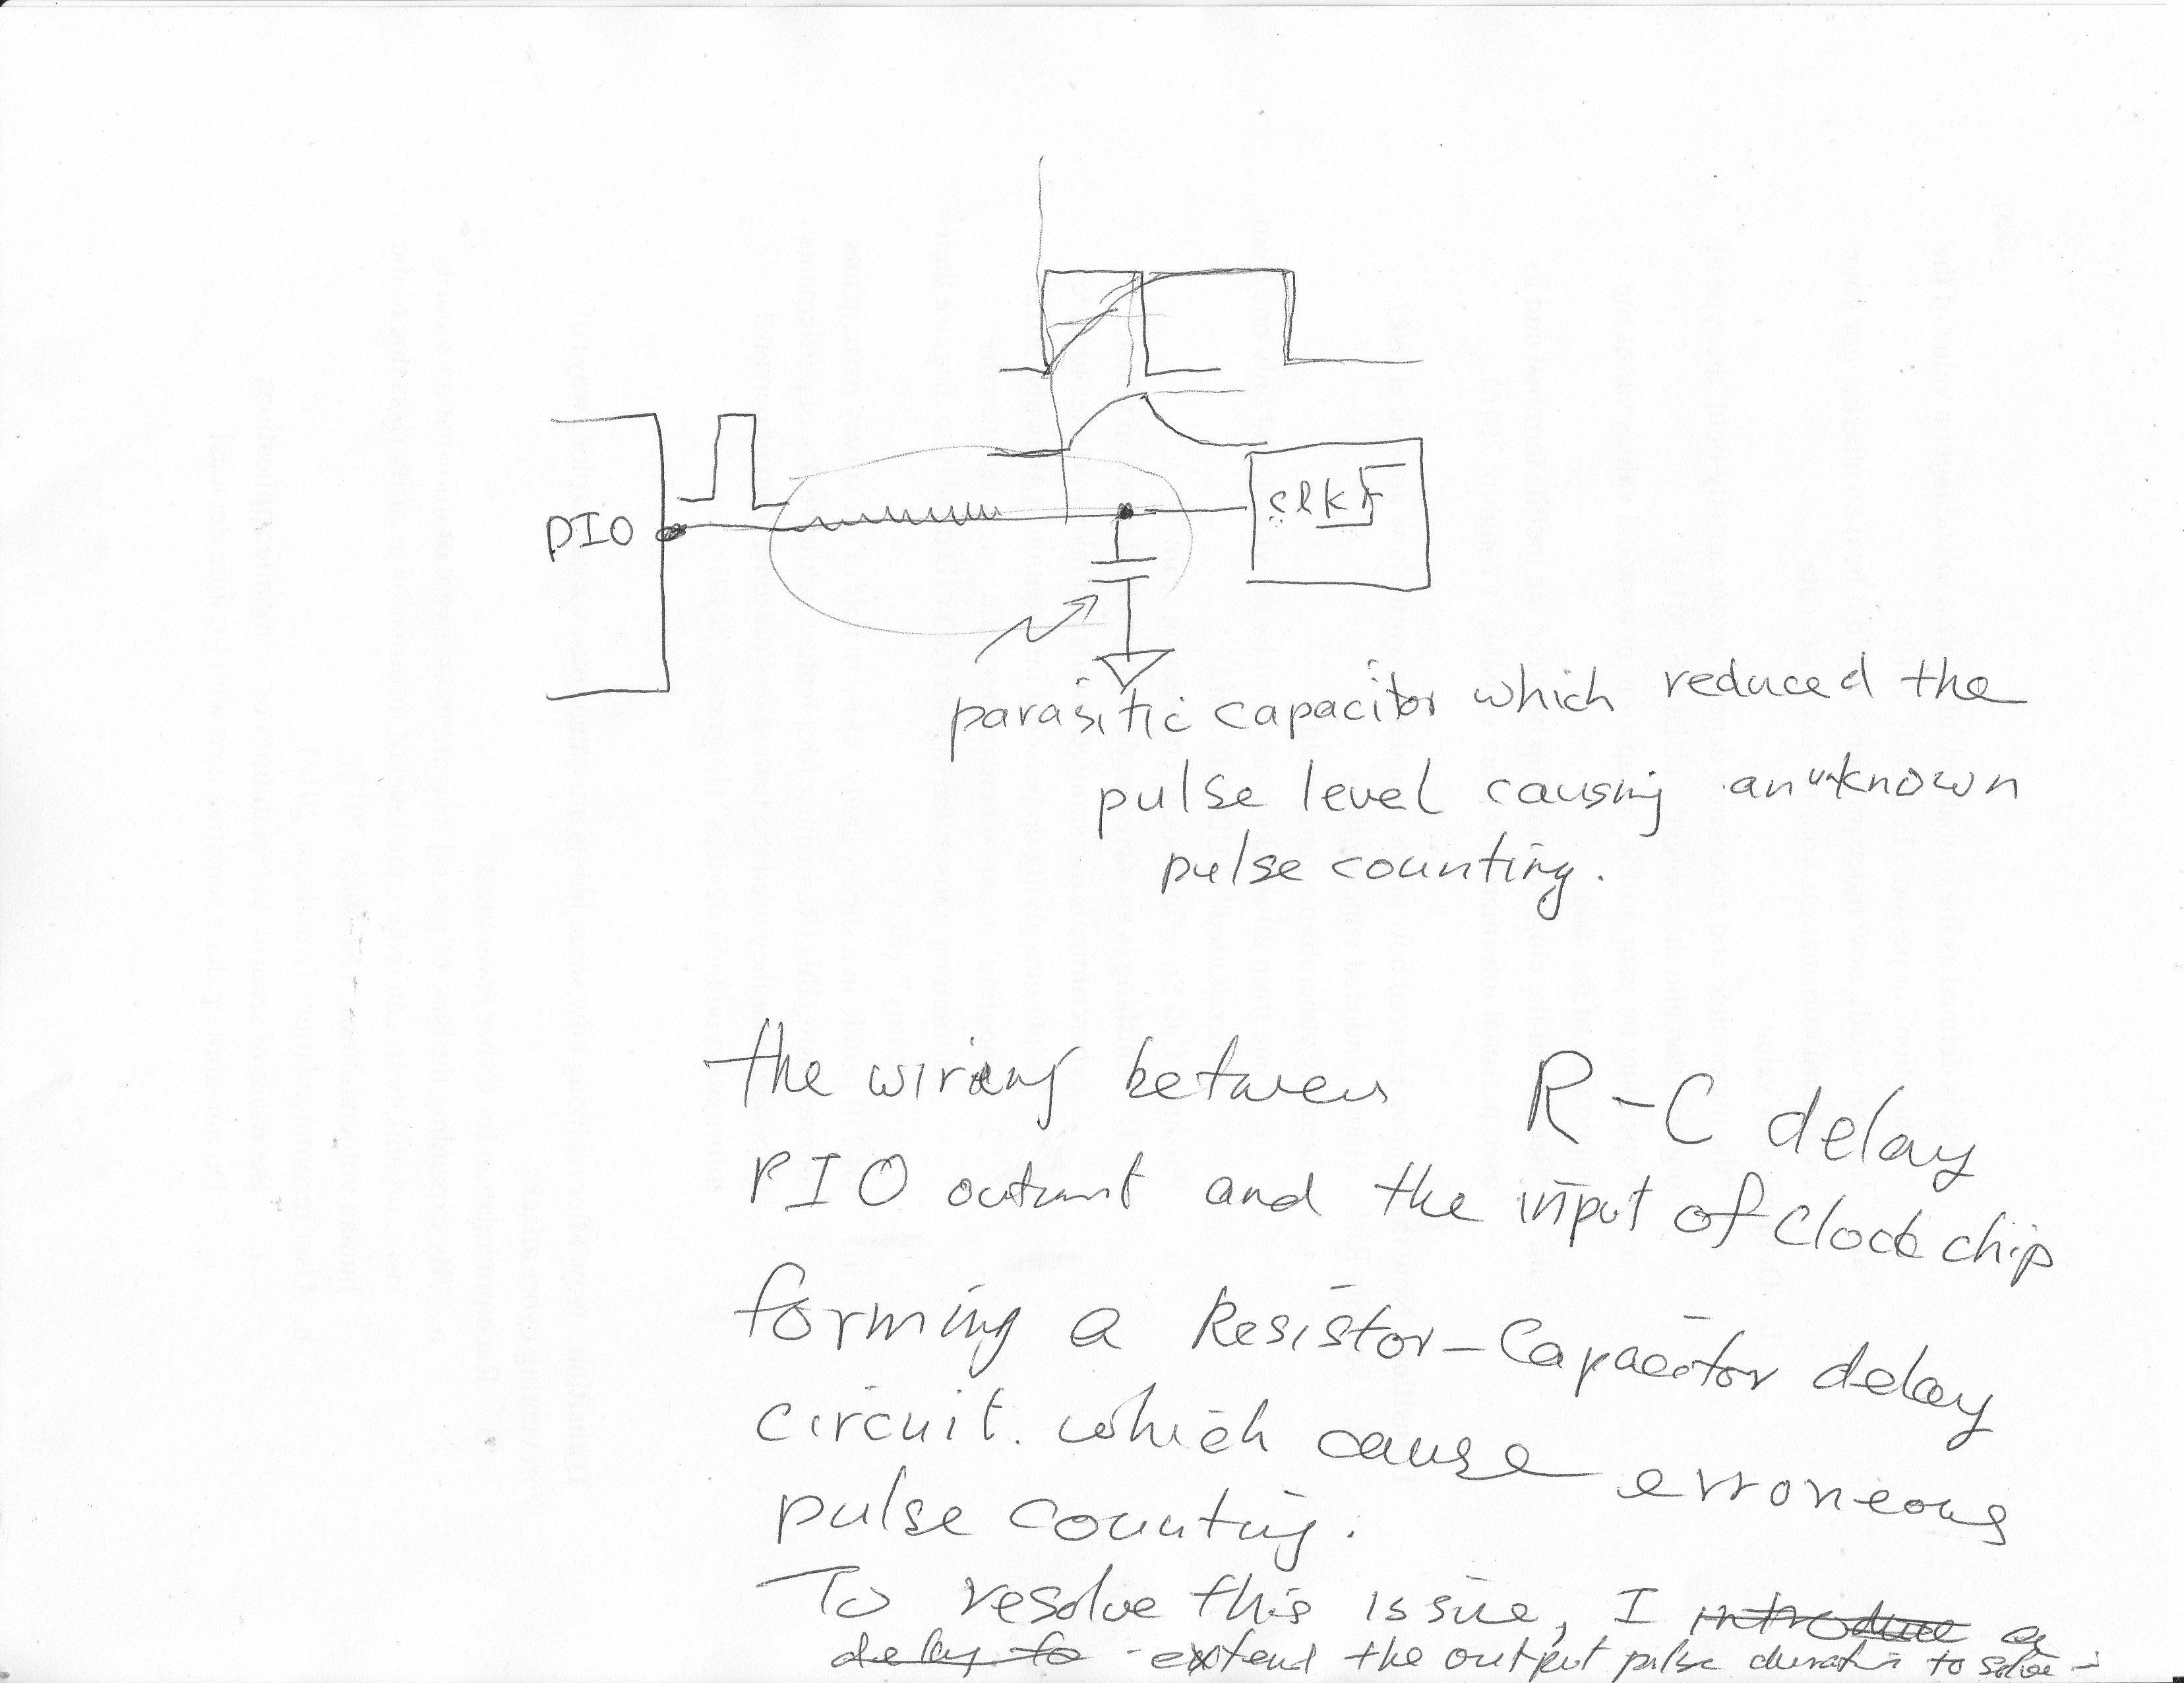 PIO
clk
parasitic capacitor which reduced the
pulse level causing an unknown
pulse counting.
the wiring between
R-C delay
PIO output and the input of clock chip
forming a Resistor-Capacitor delay
circuit. which cause erroneous
pulse counting.
To resolve this issue, I introduce a
delay to extend the output pulse duration to solve